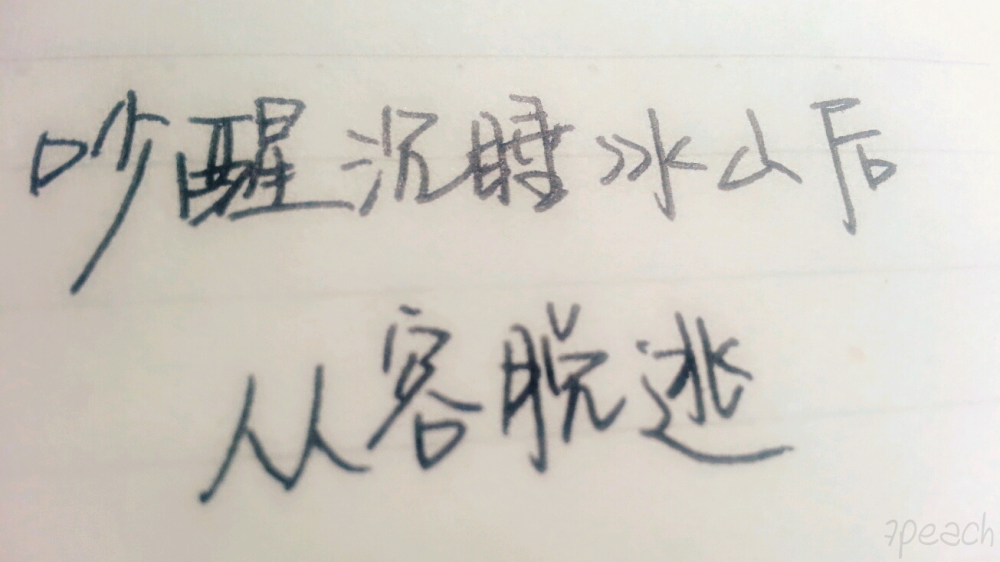 吵醒沉睡冰山后
从容脱逃
7peach